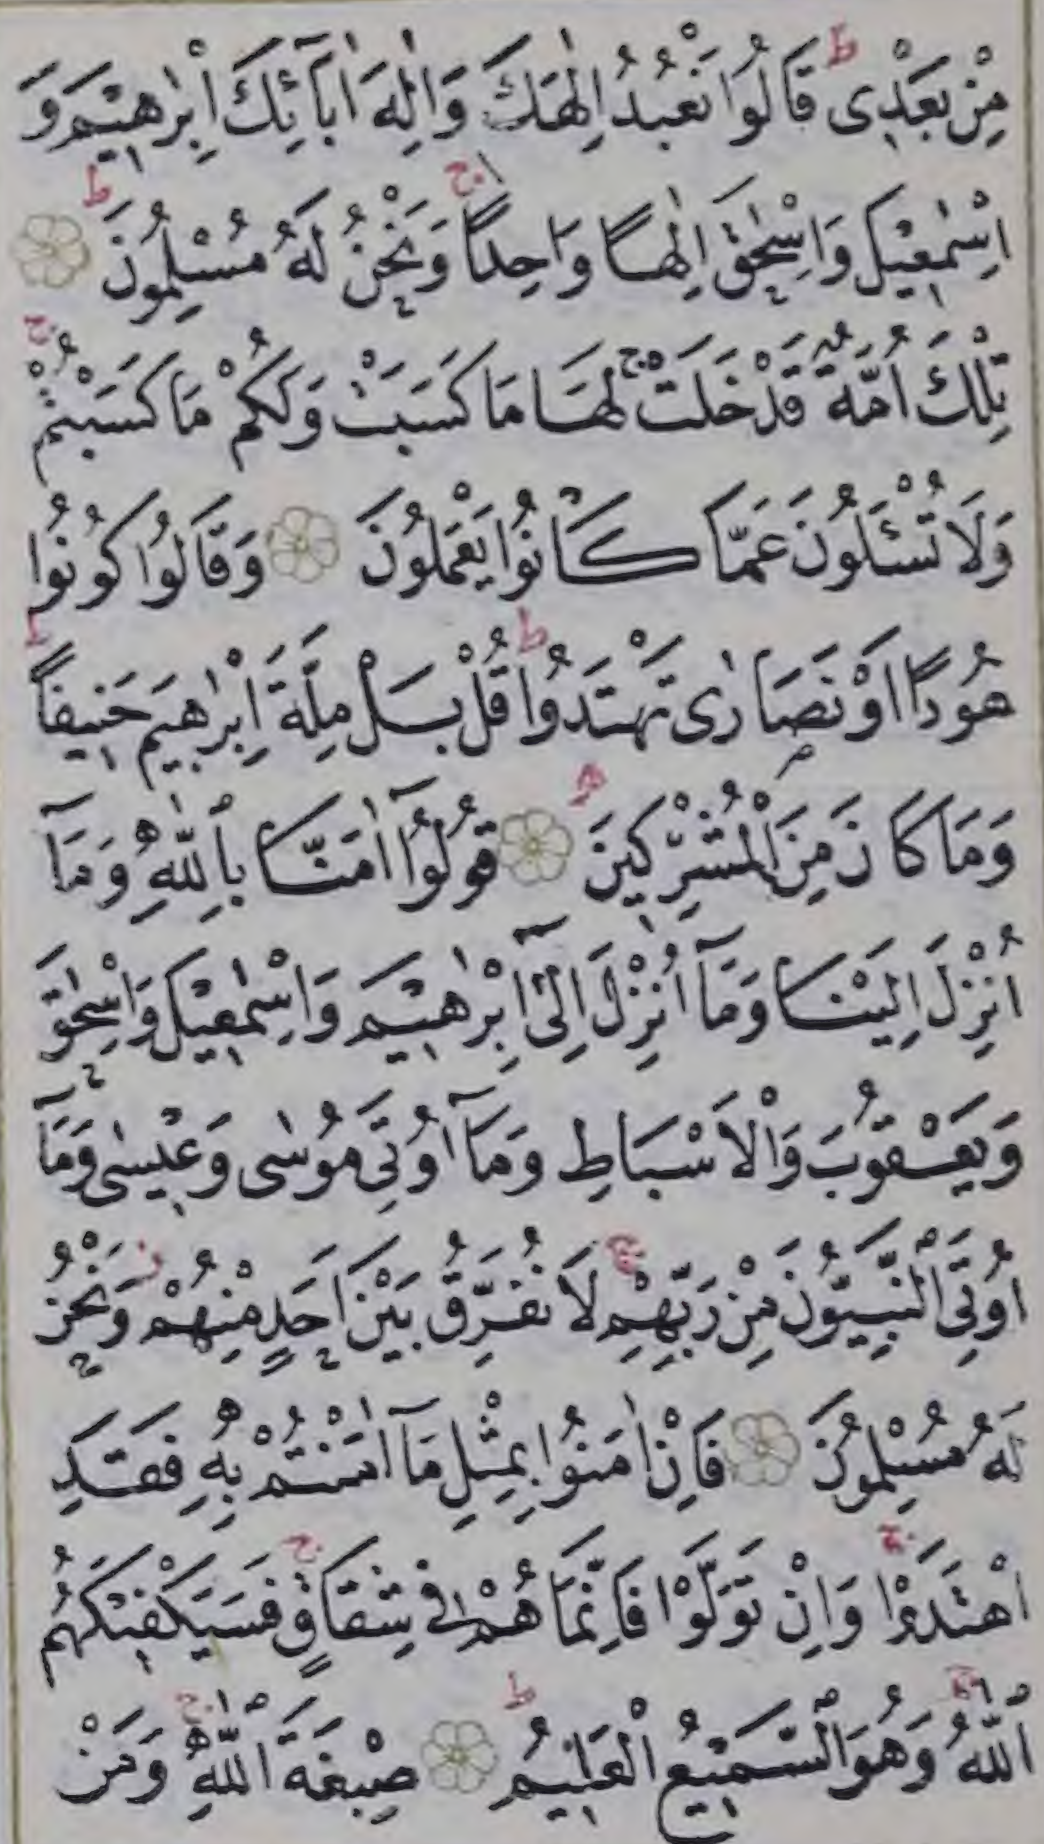 مِنْ بَعْدِى قَالُوا نَعْبُدُ اِلٰهَكَ وَاِلٰهَ اٰبَآئِكَ اِبْرٰهٖيمَ وَ
اِسْمٰعٖيلَ وَاِسْحٰقَ اِلٰهًا وَاحِدًا وَنَحْنُ لَهُ مُسْلِمُونَ
تِلْكَ اُمَّةٌ قَدْ خَلَتْ لَهَا مَا كَسَبَتْ وَلَكُمْ مَا كَسَبْتُمْ
وَلَا تُسْئَلُونَ عَمَّا كَانُوا يَعْمَلُونَ وَقَالُوا كُونُوا
هُودًا اَوْ نَصَارٰى تَهْتَدُوا قُلْ بَلْ مِلَّةَ اِبْرٰهٖيمَ حَنِيفًا
وَمَا كَانَ مِنَ الْمُشْرِكِينَ قُولُوٓا اٰمَنَّا بِاللّٰهِ وَمَآ
اُنْزِلَ اِلَيْنَا وَمَآ اُنْزِلَ اِلٰٓى اِبْرٰهٖيمَ وَاِسْمٰعٖيلَ وَاِسْحٰقَ
وَيَعْقُوبَ وَالْاَسْبَاطِ وَمَآ اُوتِىَ مُوسٰى وَعٖيسٰى وَمَآ
اُوتِىَ النَّبِيُّونَ مِنْ رَبِّهِمْ لَا نُفَرِّقُ بَيْنَ اَحَدٍ مِنْهُمْ وَنَحْنُ
لَهُ مُسْلِمُونَ فَاِنْ اٰمَنُوا بِمِثْلِ مَآ اٰمَنْتُمْ بِهٖ فَقَدِ
اهْتَدَوْا وَاِنْ تَوَلَّوْا فَاِنَّمَا هُمْ فٖى شِقَاقٍ فَسَيَكْفٖيكَهُمُ
اللّٰهُ وَهُوَ السَّمٖيعُ الْعَلٖيمُ صِبْغَةَ اللّٰهِ وَمَنْ